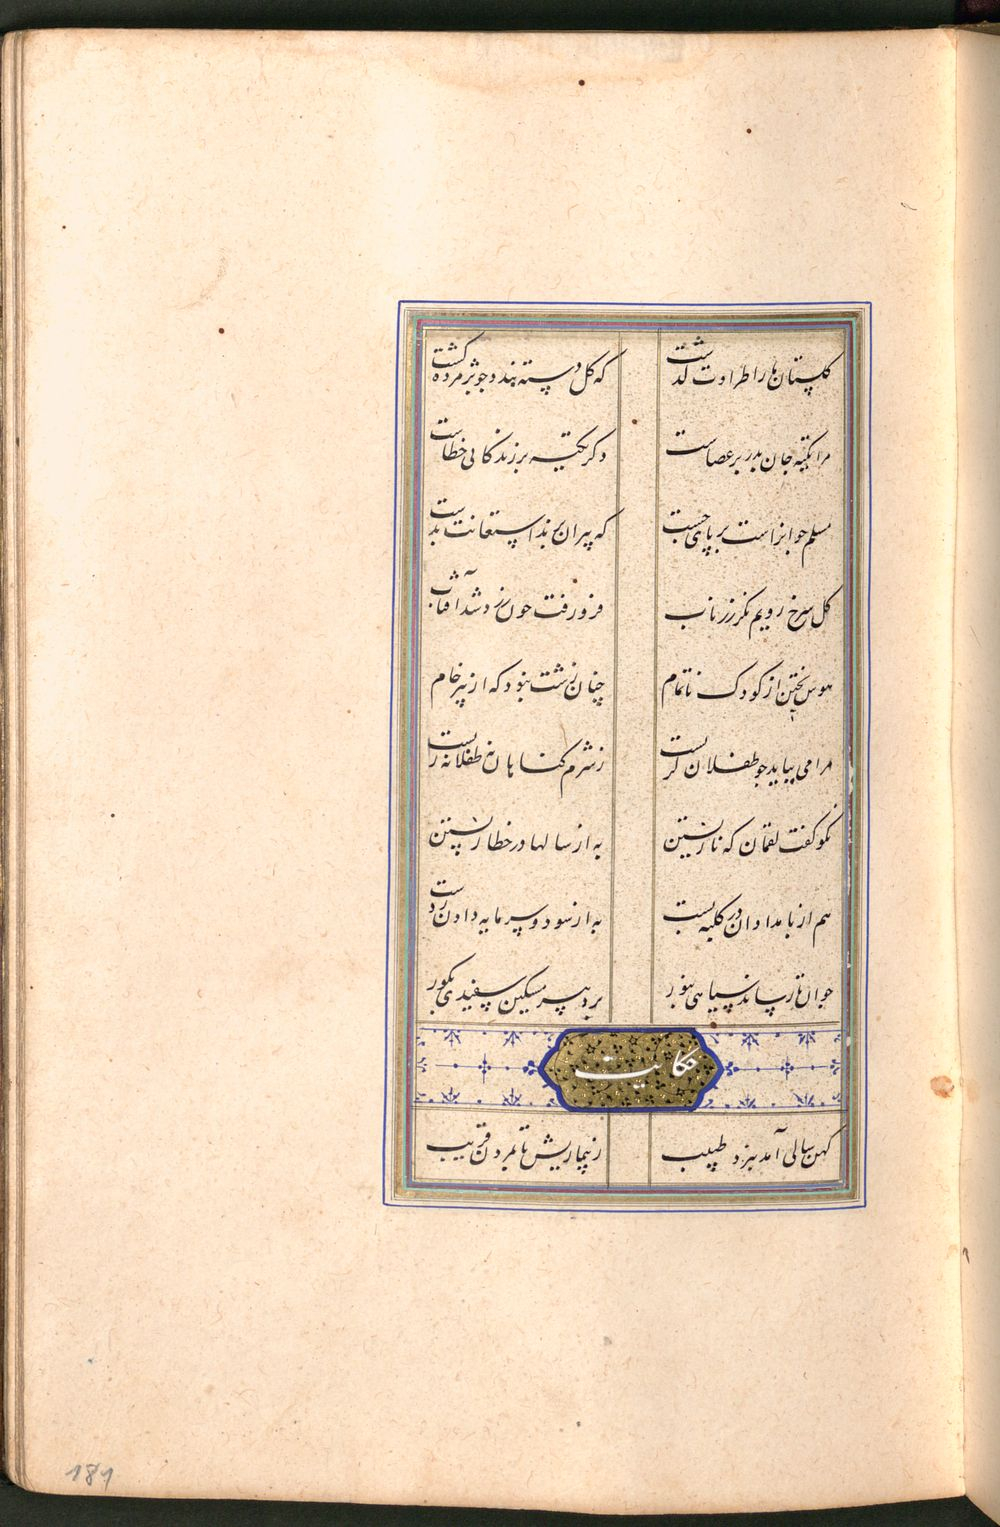 گلستان ما را طراوت گذشت که گل دسته بندد چو پژمرده گشت
مرا تکیه جان پدر بر عصاست دگر تکیه بر زندگانی خطاست
مسلم جوانراست بر پای جست که پیران برند استعانت بدست
گل سرخ رویم نگر زر ناب فرو رفت چون زرد شد آفتاب
هوس پختن از کودک ناتمام چنان زشت نبود که از پیر خام
مرا می بباید چو طفلان گریست ز شرم گناهان نه طفلانه زیست
نکو گفت لقمان که نازیستن به از سالها در خطا زیستن
هم از بامدادان در کلبه بست به از سود و سرمایه دادن ز دست
جوان تا رساند سیاهی بنور برد پیر مسکین سفیدی بگور
حکایت
کهن سالی آمد بنزد طبیب ز نیماریش تا بمردن قریب
181